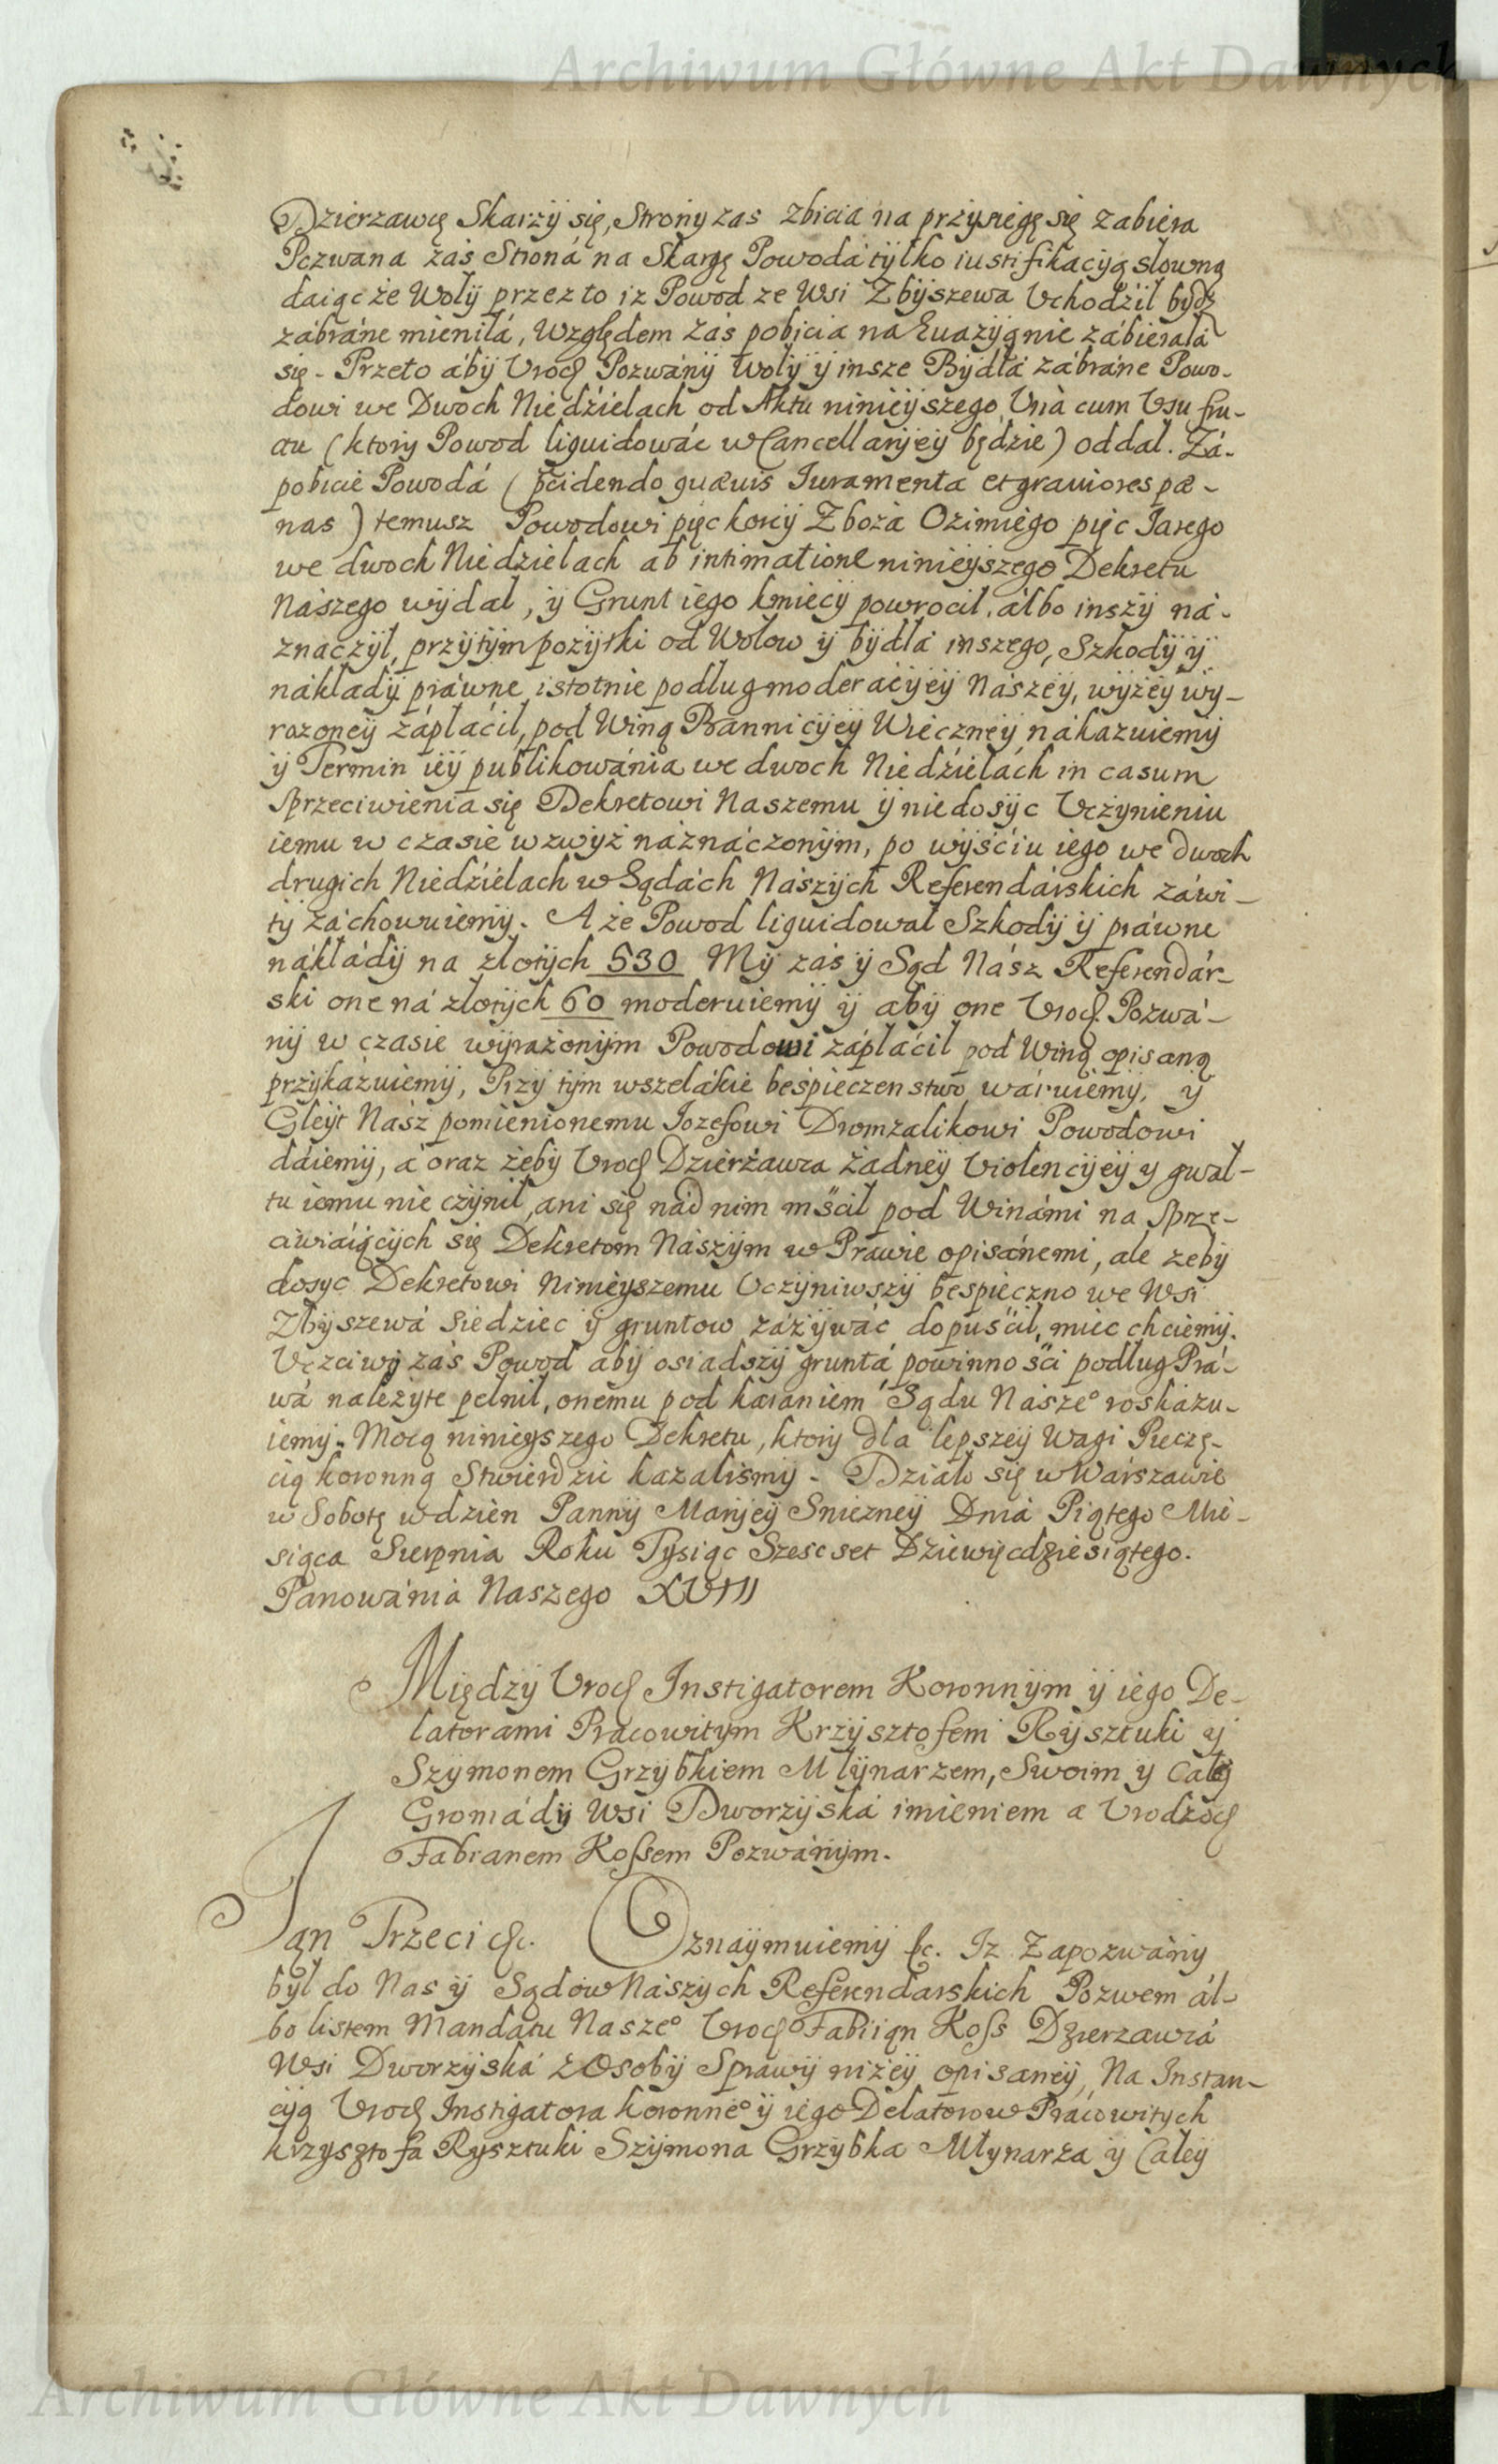 Archiwum Główne Akt Dawnych
Dzierzawcę Skarzy się, Strony zas zbicia na przysięgę się zabiera
Pozwana zaś Stroná na Skargę Powodá tylko iustifikacyą słowną
daiąc że Woły przez to iz Powod ze Wsi Zbyszewa Vchodził bydz
zábráne mieniłá, Względem záś pobicia na Euazyą nie zábierałá
się - Przeto áby Vrodz Pozwány woły y insze Bydłá zábráne Powo-
dowi we Dwoch Niedźielach od Aktu ninieyszego Vnà cum Vsu fru-
ctu (ktory Powod liquidowáć w Cancellaryey będzie) oddał. Zá-
pobicie Powodá (pcidendo quæuis Iuramenta et grauiores pæ-
nas) temusz Powodowi pięc korcy Zbożá Ozimiego pięc Iarego
we dwoch Niedzielach ab intimatione ninieyszego Dekretu
Nászego wydał, y Grunt iego kmiecy powrocił, álbo inszy ná-
znaczył, przytym pożytki od Wołow y bydłá inszego, Szkody y
nákłády práwne istotnie podług moderácyey Nászey, wyżey wy-
razoney zápłáćił, pod Winą Bannicyey Wieczney nákazuiemy
y Termin iey publikowánia we dwoch Niedźielách in casum
Sprzeciwienia się Dekretowi Naszemu y niedosyc Vczynieniu
iemu w czasie wzwyż náznáczonym, po wyśćiu iego we dwoch
drugich Niedźielach w Sądách Nászych Referendárskich záwi-
ty záchowuiemy. A że Powod liquidował Szkody y práwne
nákłády na złotych 530 My záś y Sąd Nász Referendár-
ski one ná złotych 60 moderuiemy y aby one Vrodz. Pozwá-
ny w czasie wyrażonym Powodowi zápłáćił pod Winą opisaną
przykázuiemy, Przy tym wszelákie bespieczenstwo wáruiemy, y
Gleyt Nász pomienionemu Iozefowi Dromzalikowi Powodowi
dáiemy, á oraz żeby Vrodz Dzierżawca żadney Violencyey y gwał-
tu iemu nie czynił, ani się nád nim mśćił pod Winámi na Sprze-
ciwiáiących się Dekretom Nászym w Prawie opisánemi, ale żeby
dosyc Dekretowi Ninieyszemu Vczyniwszy bespieczno we Wsi
Zbyszewá Siedziec y gruntow záżywáć dopuśćił, miec chcemy.
Vczciwy záś Powod aby osiadszy gruntá powinnośći podług Prá-
wá należyte pełnił, onemu pod karaniem Sądu Nasze⁰ roskázu-
iemy. Mocą ninieyszego Dekretu, ktory dla lepszey Wagi Pieczę-
cią koronną Stwierdzić kazalismy - Działo się w Wárszawie
w Sobotę w dzien Panny Maryey Sniezney Dnia Piątego Mie-
siąca Sierpnia Roku Tysiąc Szescset Dziewięcdziesiątego.
Panowánia Naszego XVII
Między Vrodz Instigatorem Koronnym y iego De-
latorami Pracowitym Krzysztofem Rysztuki y
Szymonem Grzybkiem Młynarzem, Swoim y Całey
Gromády Wsi Dworzyská imieniem a Vrodzo
Fabianem Kossem Pozwánym.
Ian Trzeci &c. Oznaymuiemy &c. Iz Zapozwány
był do Nas y Sądow Nászych Referendarskich Pozwem ál-
bo listem Mandatu Nasze⁰ Vrodz Fabiian Koss Dzierzawcá
Wsi Dworzyská z Osoby Sprawy niżey opisaney, Na Instan-
cyą Vrodz Instigatora koronne⁰ y iego Delatorow Pracowitych
krzysztofa Rysztuki Szymona Grzybka Młynarza y Całey
Archiwum Główne Akt Dawnych